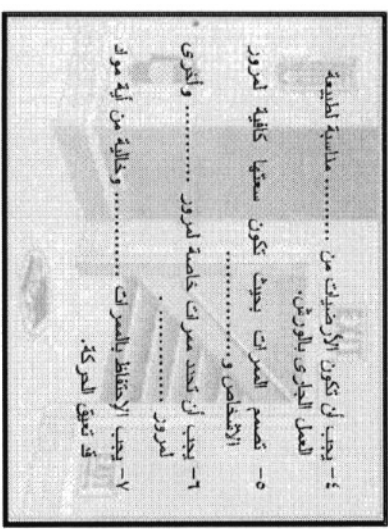 ٤- يجب أن تكون الأرضيات من ......... مناسبة لطبيعة
العمل الجارى بالورش.
٥- تصمم الممرات بحيث تكون سعتها كافية لمرور
الأشخاص و...............
٦- يجب أن تحدد ممرات خاصة لمرور ............ وأخرى
لمرور ............ .
٧- يجب الإحتفاظ بالممرات ........... وخالية من أية مواد
قد تعيق الحركة.
EXIT